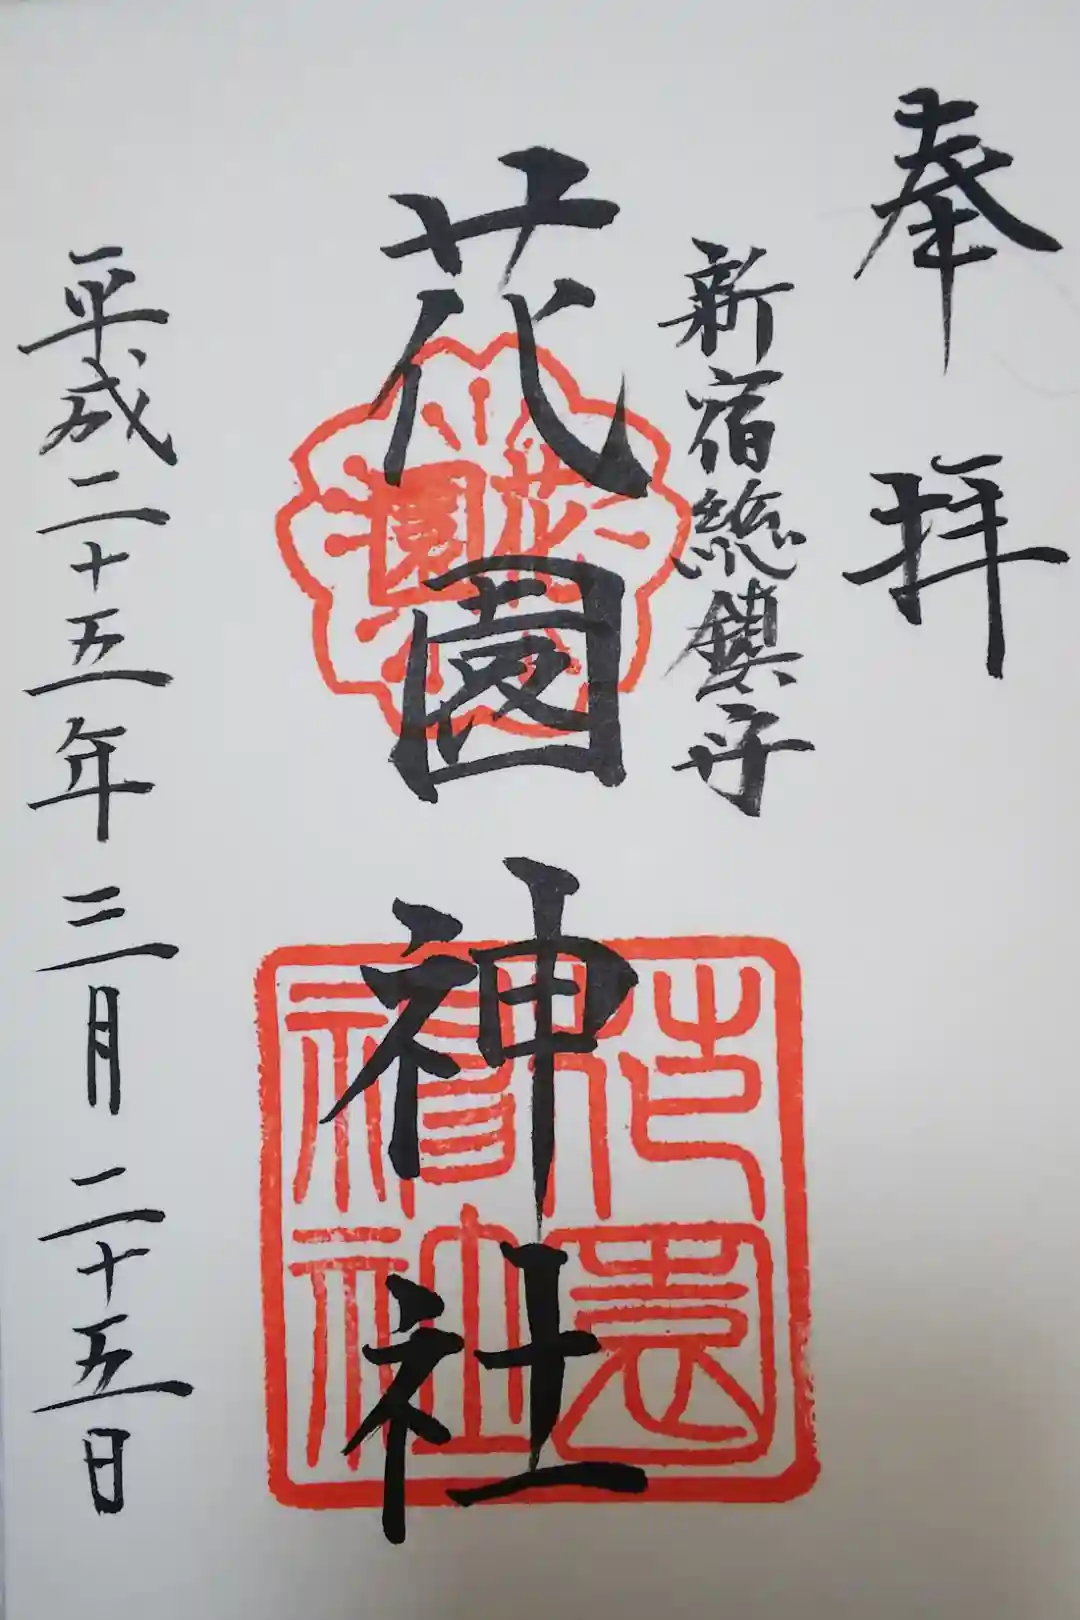 奉拝
新宿総鎮守
花園神社
花園
花園神社
平成二十五年三月二十五日